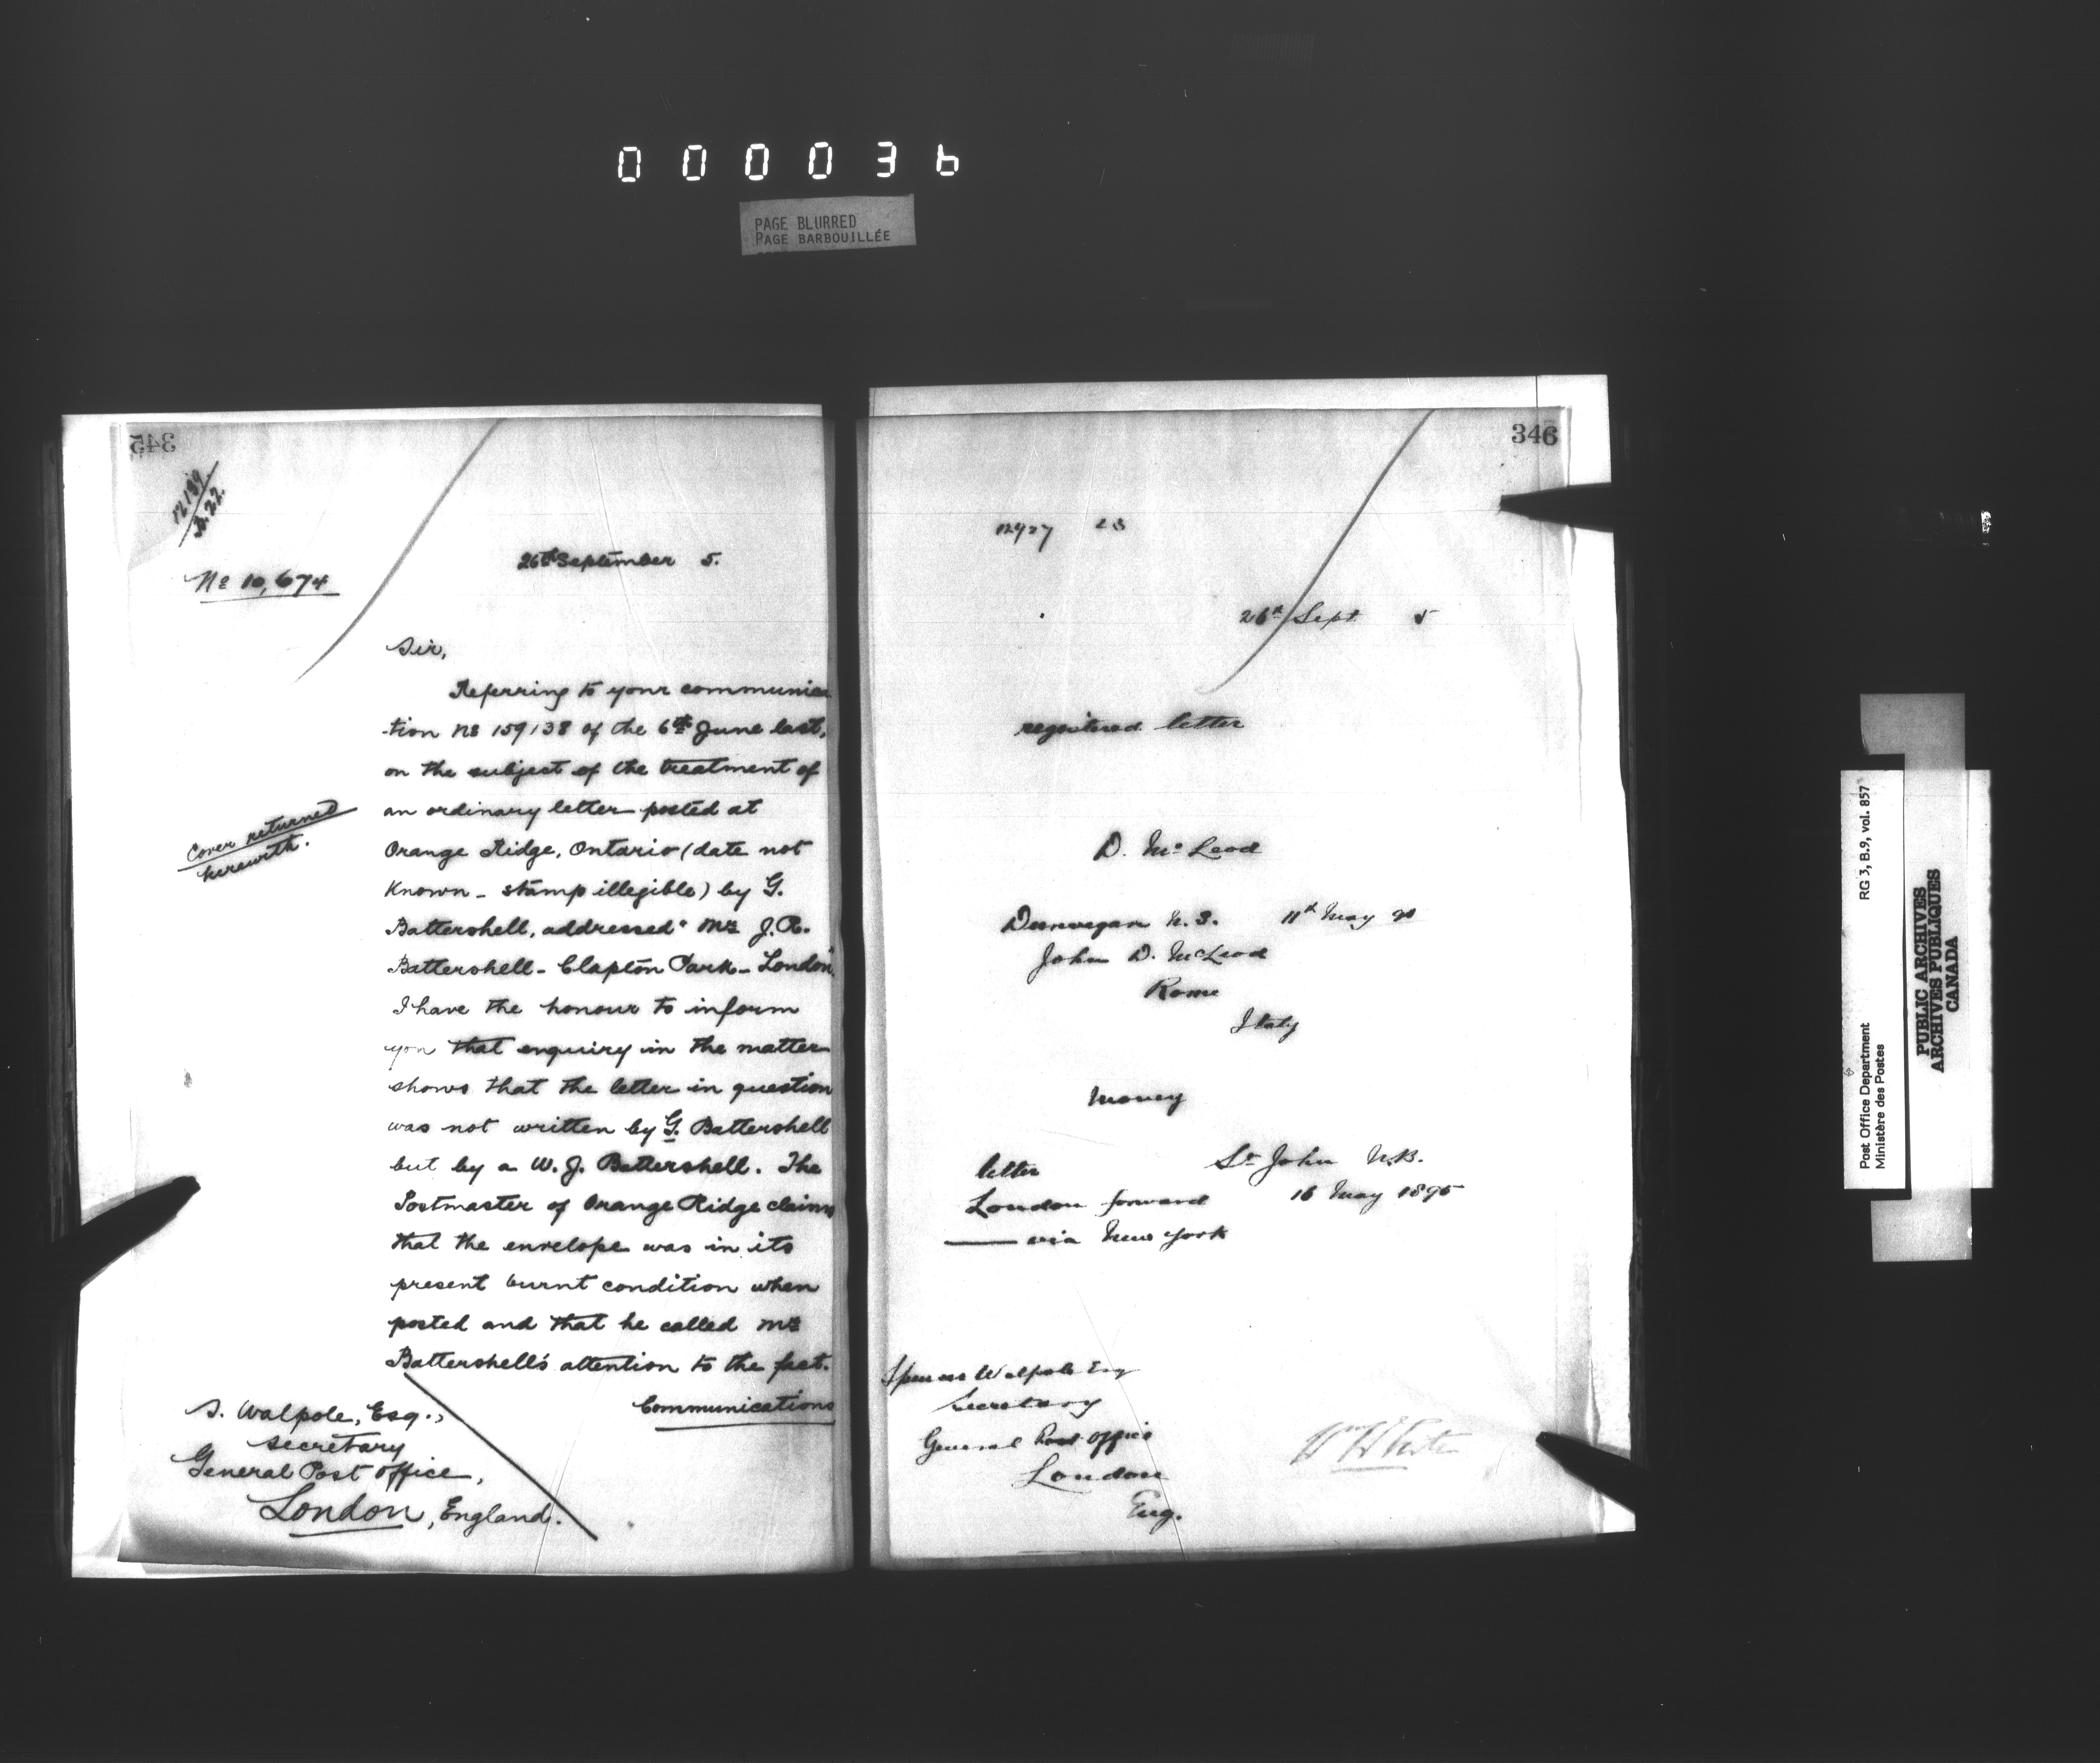 000036
PAGE BLURRED
PAGE BARBOUILLÉE
345
12139
B. 22.
No 10,674
26th September 5.
Sir,
Referring to your communica
-tion No 159138 of the 6th June last,
on the subject of the treatment of
an ordinary letter posted at
Orange Ridge, Ontario (date not
known - stamp illegible) by G.
Battershell, addressed "Mrs J. R.
Battershell - Clapton Park - London"
I have the honour to inform
you that enquiry in the matter
shows that the letter in question
was not written by G. Battershell
but by a W. J. Battershell. The
Postmaster of Orange Ridge claims
that the envelope was in its
present burnt condition when
posted and that he called Mr
Battershell's attention to the fact.
Communications
Cover returned
herewith.
S. Walpole, Esq.,
Secretary
General Post Office,
London, England.
346
12927 23
26th Sept 5
registered letter
D. McLeod
Dunvegan N.S. 11th May
John D. McLeod
Rome
Italy
Money
letter St John N.B.
London forward 16 May 1895
via New York
Spencer Walpole Esq
Secretary
General Post Office
London
Eng.
Post Office Department
Ministère des Postes
RG 3, B.9, vol. 857
PUBLIC ARCHIVES
ARCHIVES PUBLIQUES
CANADA